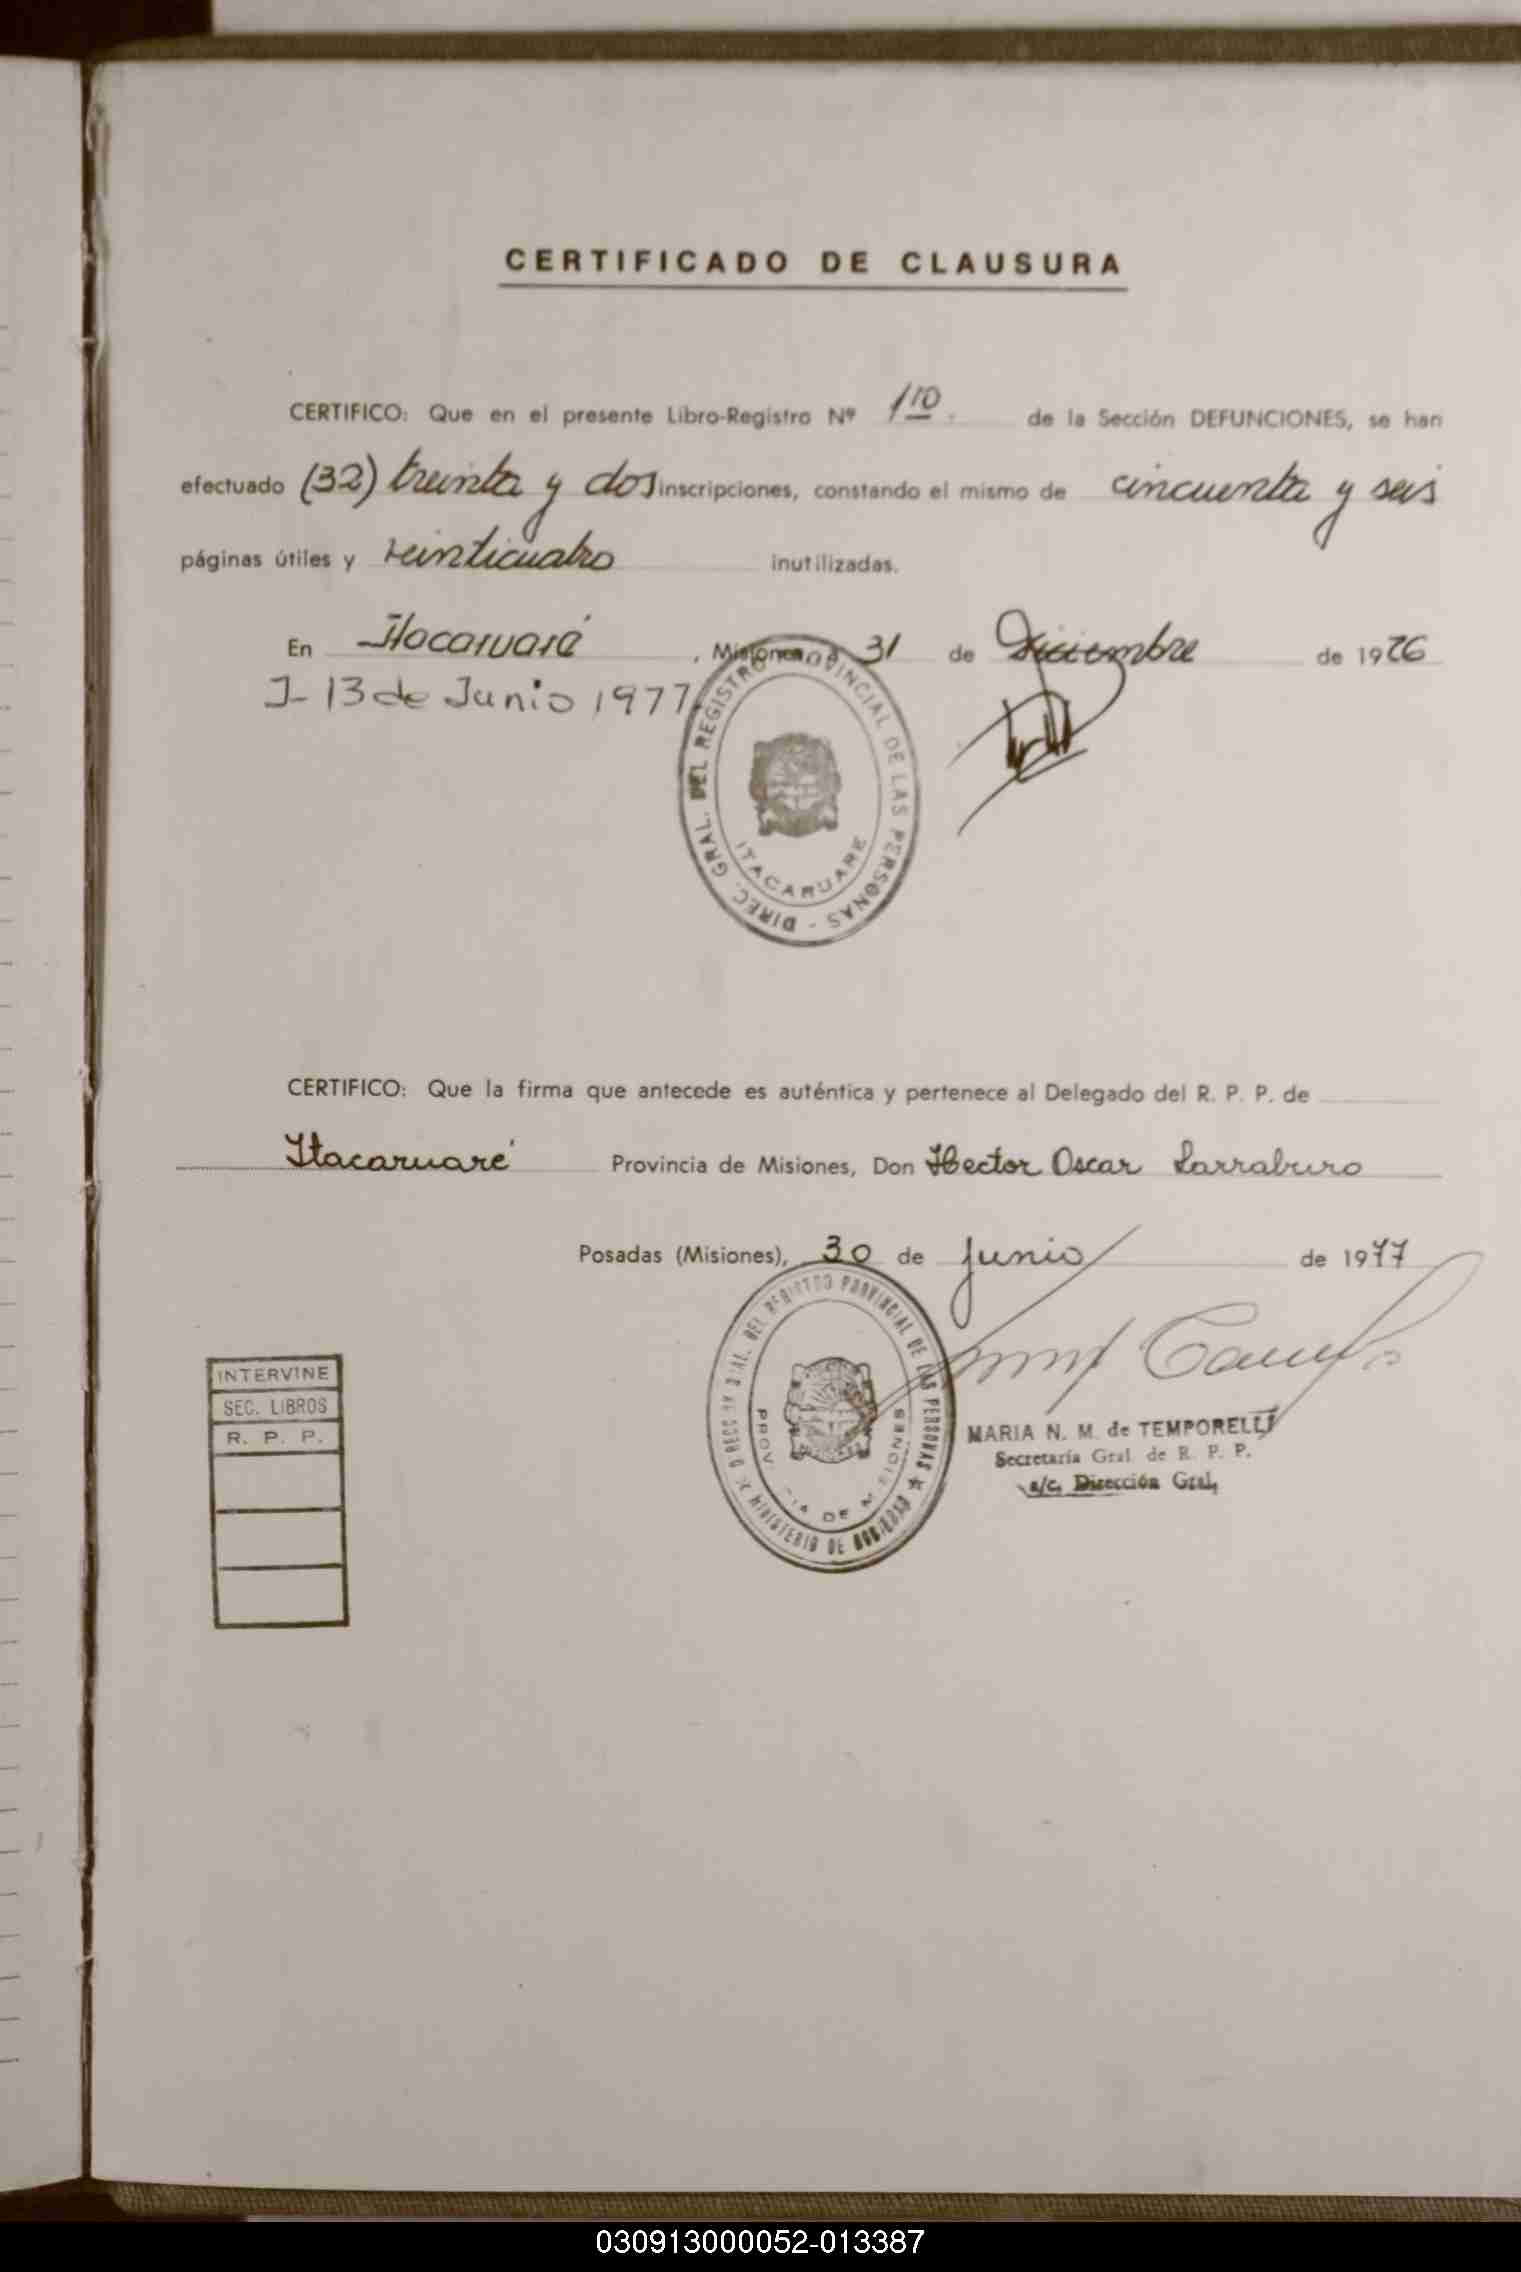 CERTIFICADO DE CLAUSURA
CERTIFICO: Que en el presente Libro-Registro Nº 1ro. de la Sección DEFUNCIONES, se han
efectuado (32) treinta y dos inscripciones, constando el mismo de cincuenta y seis
páginas útiles y veinticuatro inutilizadas.
En Itacaruaré, Misiones a 31 de Diciembre de 1976
I- 13 de Junio 1977
DIREC. GRAL. DEL REGISTRO PROVINCIAL DE LAS PERSONAS -
ITACARUARE
CERTIFICO: Que la firma que antecede es auténtica y pertenece al Delegado del R. P. P. de
Itacaruaré Provincia de Misiones, Don Hector Oscar Larraburo
Posadas (Misiones), 30 de junio de 1977
DEL REGISTRO PROVINCIAL DE LAS PERSONAS
MINISTERIO DE
DE MISIONES
MARIA N. M. de TEMPORELLI
Secretaría Gral. de R. P. P.
a/c. Dirección Gral.
INTERVINE
SEC. LIBROS
R. P. P.
030913000052-013387